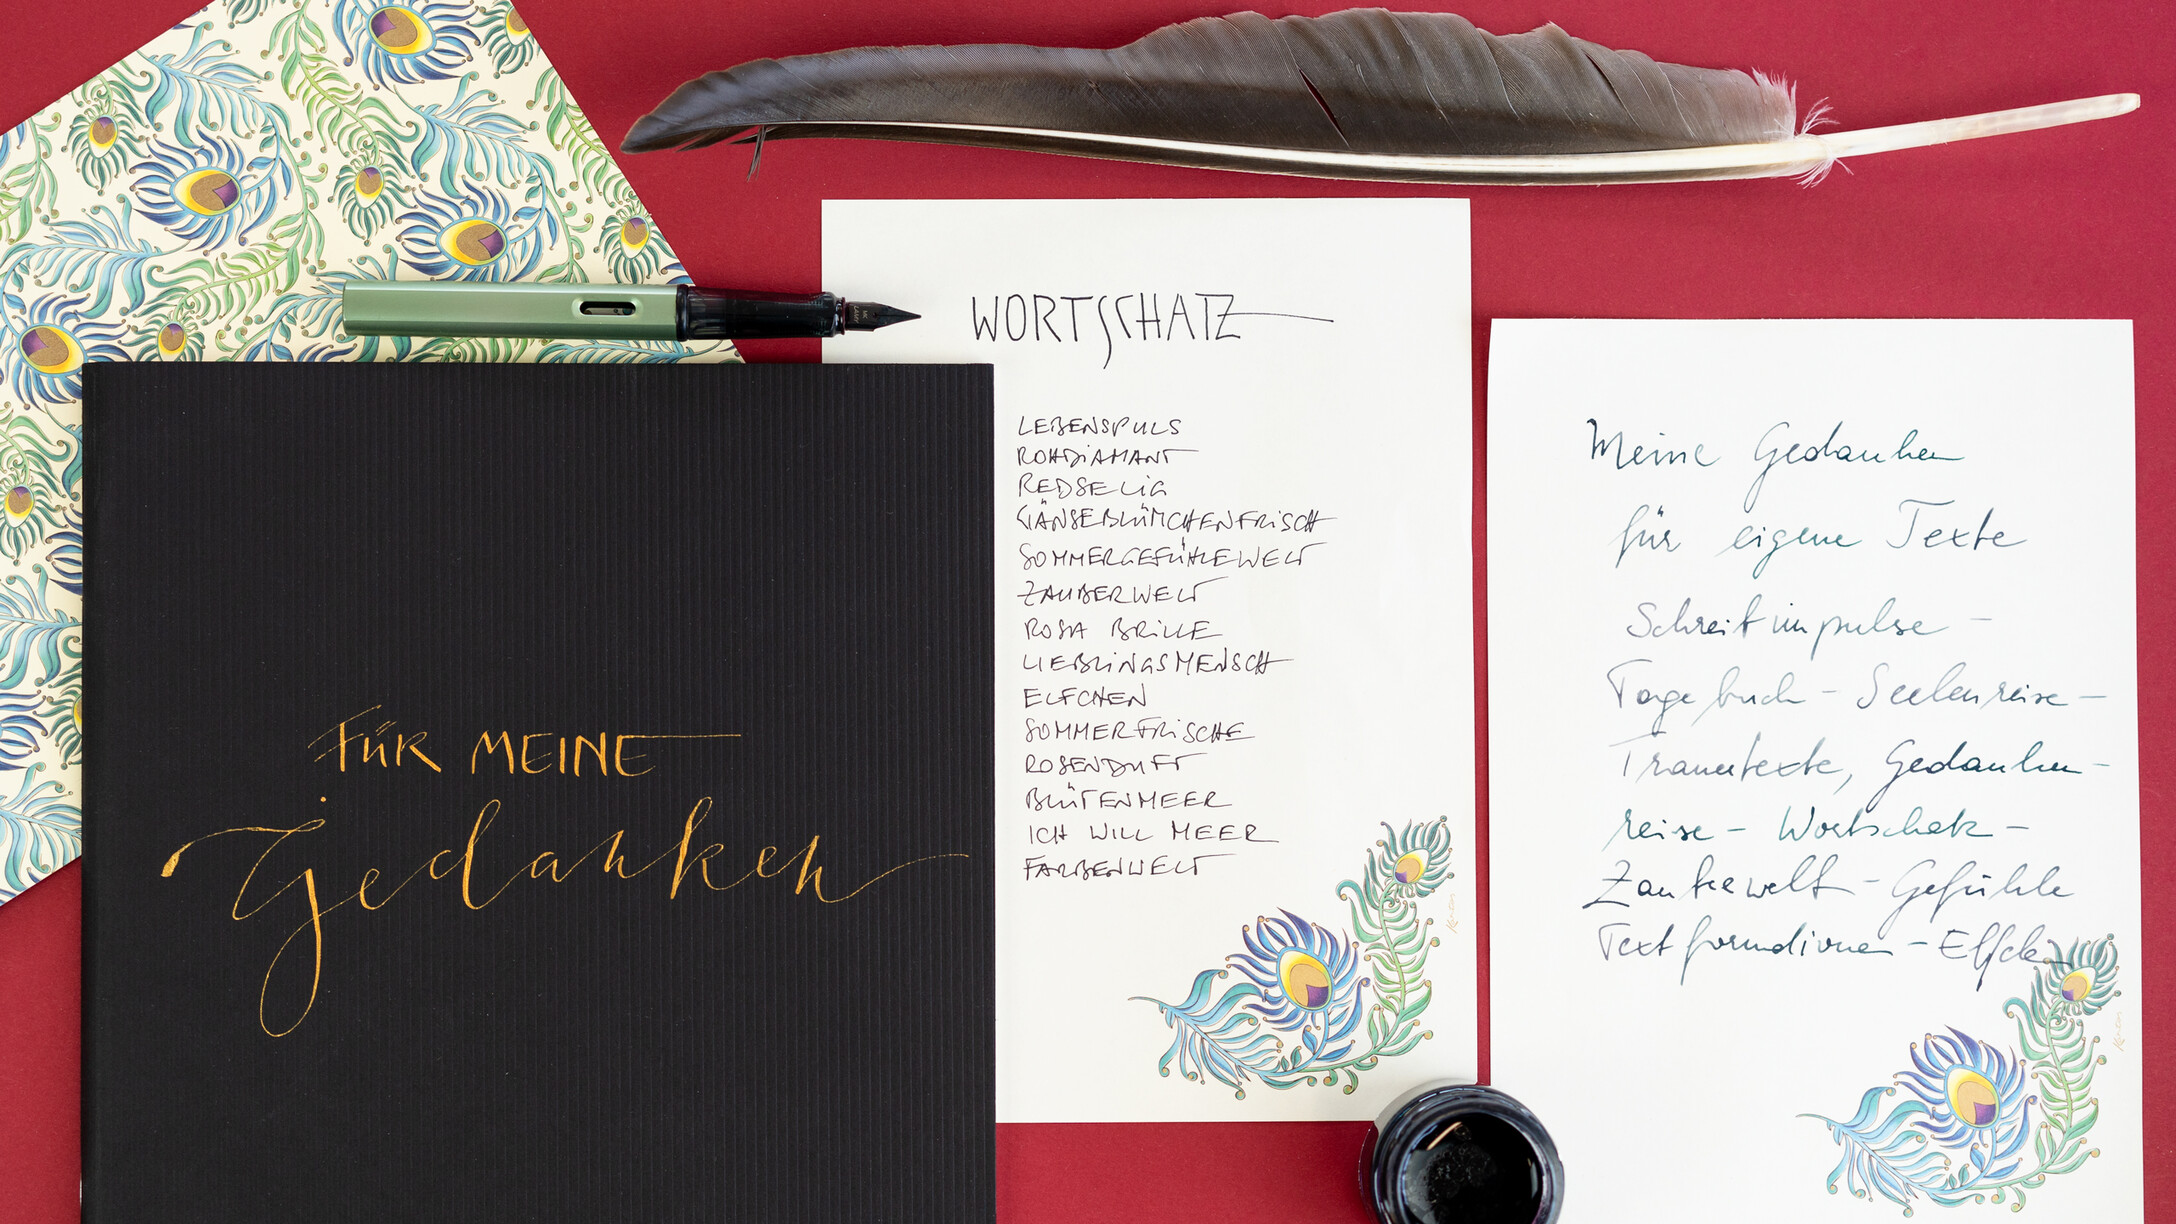 FÜR MEINE
Gedanken
WORTSCHATZ
LEBENSPULS
ROHDIAMANT
REDSELIG
GÄNSEBLÜMCHENFRISCH
SOMMERGEFÜHLEWELT
ZAUBERWELT
ROSA BRILLE
LIEBLINGSMENSCH
ELFCHEN
SOMMERFRISCHE
ROSENDUFT
BLÜTENMEER
ICH WILL MEER
FARBENWELT
Meine Gedanken
für eigene Texte
Schreibimpulse –
Tagebuch – Seelenreise –
Traumtexte, Gedanken-
reise – Wortschatz –
Zauberwelt – Gefühle
Textformationen – Elfchen